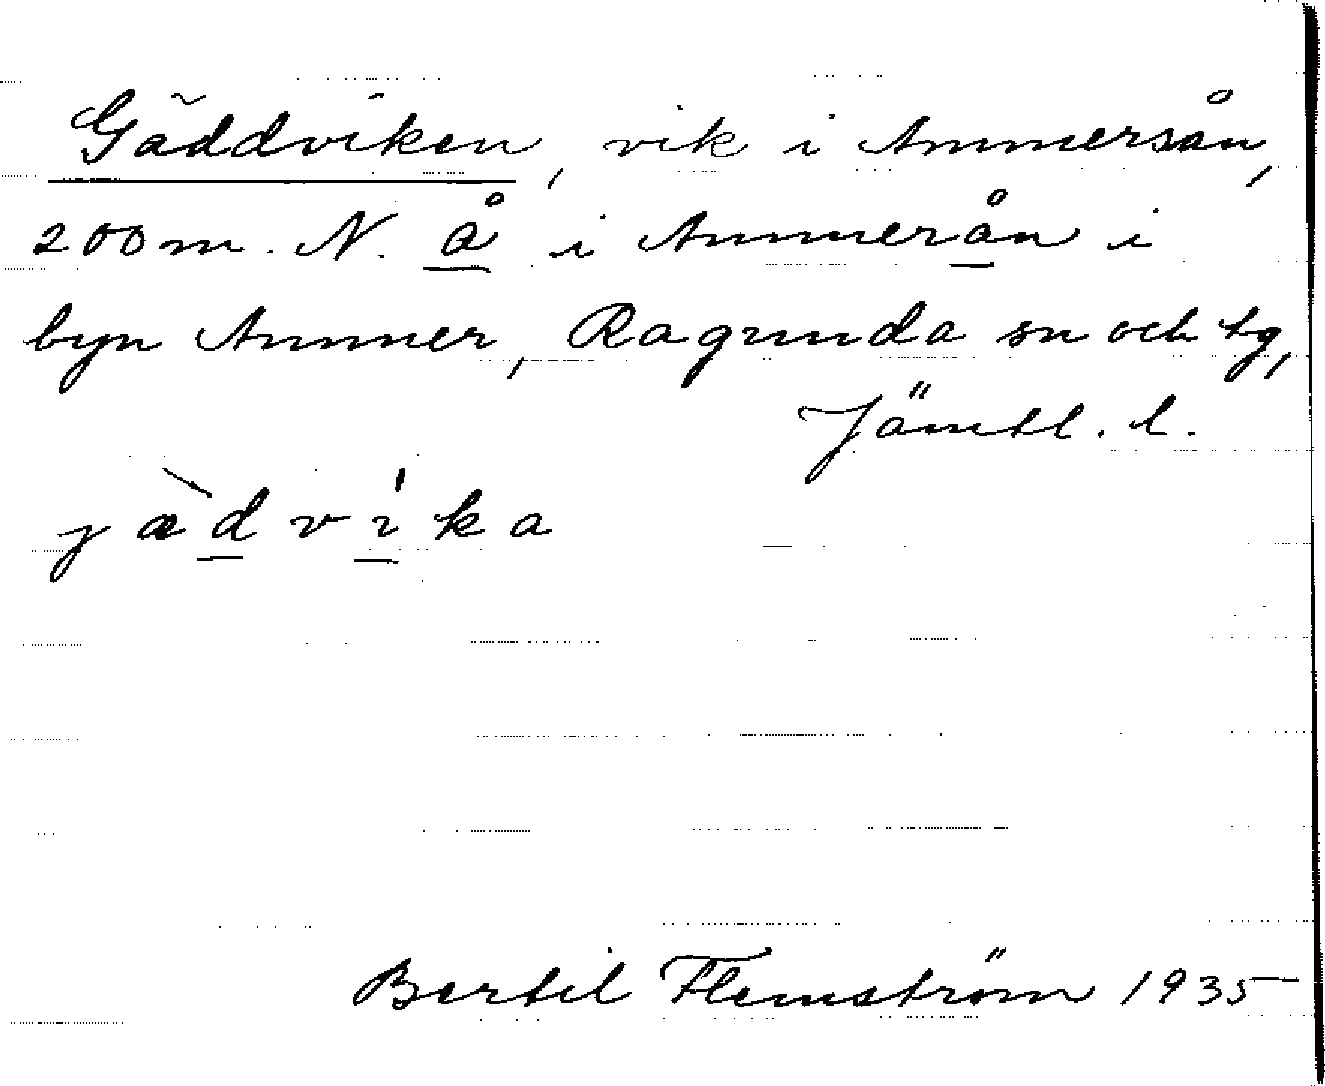 Gäddviken, vik i Ammersån,
200 m. N. å i Ammerån i
byn Ammer, Ragunda sn och tg,
Jämtl. l.
jàdvíka
Bertil Flemström 1935